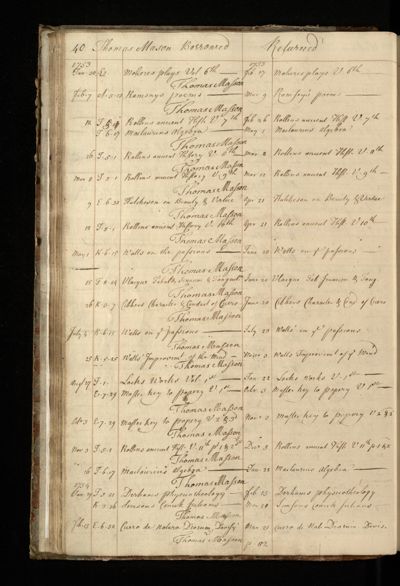 40 Thomas Mason Borrowed Returned
1753 1753
Molieres plays Vol 6th Feb 17 Molieres plays V 6th
Thomas Masson
Feb 7 Ramsays poems Mar 9 Ramsays poems
Thomas Masson
Rollins ancient Hist. V 7th Feb 26 Rollins ancient Hist. V 7th
F 6.19 Maclaurins algebra May 1 Maclaurins algebra
Thomas Masson
26 F.5.1 Rollins ancient History V 8th Mar 8 Rollins ancient Hist. V 8th
Thomas Masson
Mar 8 F.5.1 Rollins ancient History V 9th Mar 12 Rollins ancient Hist. V 9th
Thomas Masson
9 E.6.30 Hutcheson on Beauty & Virtue Apr 21 Hutcheson on Beauty & Virtue
Thomas Masson
12 F.5.1 Rollins ancient History V 10th Apr 21 Rollins ancient Hist. V 10th
Thomas Masson
May 1 K.6.15 Watts on the passions June 20 Watts on ye passions
Thomas Masson
15
Thomas Masson
26 K.3.7 Cibbers Character & Conduct of Cicero June 20 Cibbers Character & Con of Cicero
Thomas Masson
July K.6.15 Watts on ye passions July 23 Watts on ye passions
Thomas Masson
23 K.5.25 Watts Improvemt of the Mind Novr 3 Watts Improvemt of ye Mind
Thomas Masson
F.1. Locks Works Vol. 1st Jan 22 Locks works V. 1st
E.7.29 Master key to popery V 1st Octr 3 Master key to popery V 1st
Thomas Masson
Oct 3 E.7.29 Master key to popery V 2 & 3 Novr 3 Master key to popery V 2 & 3
Thomas Masson
Nov 3 F.5.1 Rollins ancient Hist. V 11th Decr Rollins ancient Hist. V 11th
Thomas Masson
16 F.6.19 Maclaurins algebra Jan 22 Maclaurins algebra
Thomas Masson
1754
Derhams physicotheology Feb 13 Derhams physicotheology
Simsons Conick sections Simsons Conick sections
Thomas Masson
Feb 13 E.6.38 Cicero de Natura Deorum Mar 23 Cicero de Nat Deorum
Thomas Masson p. 112